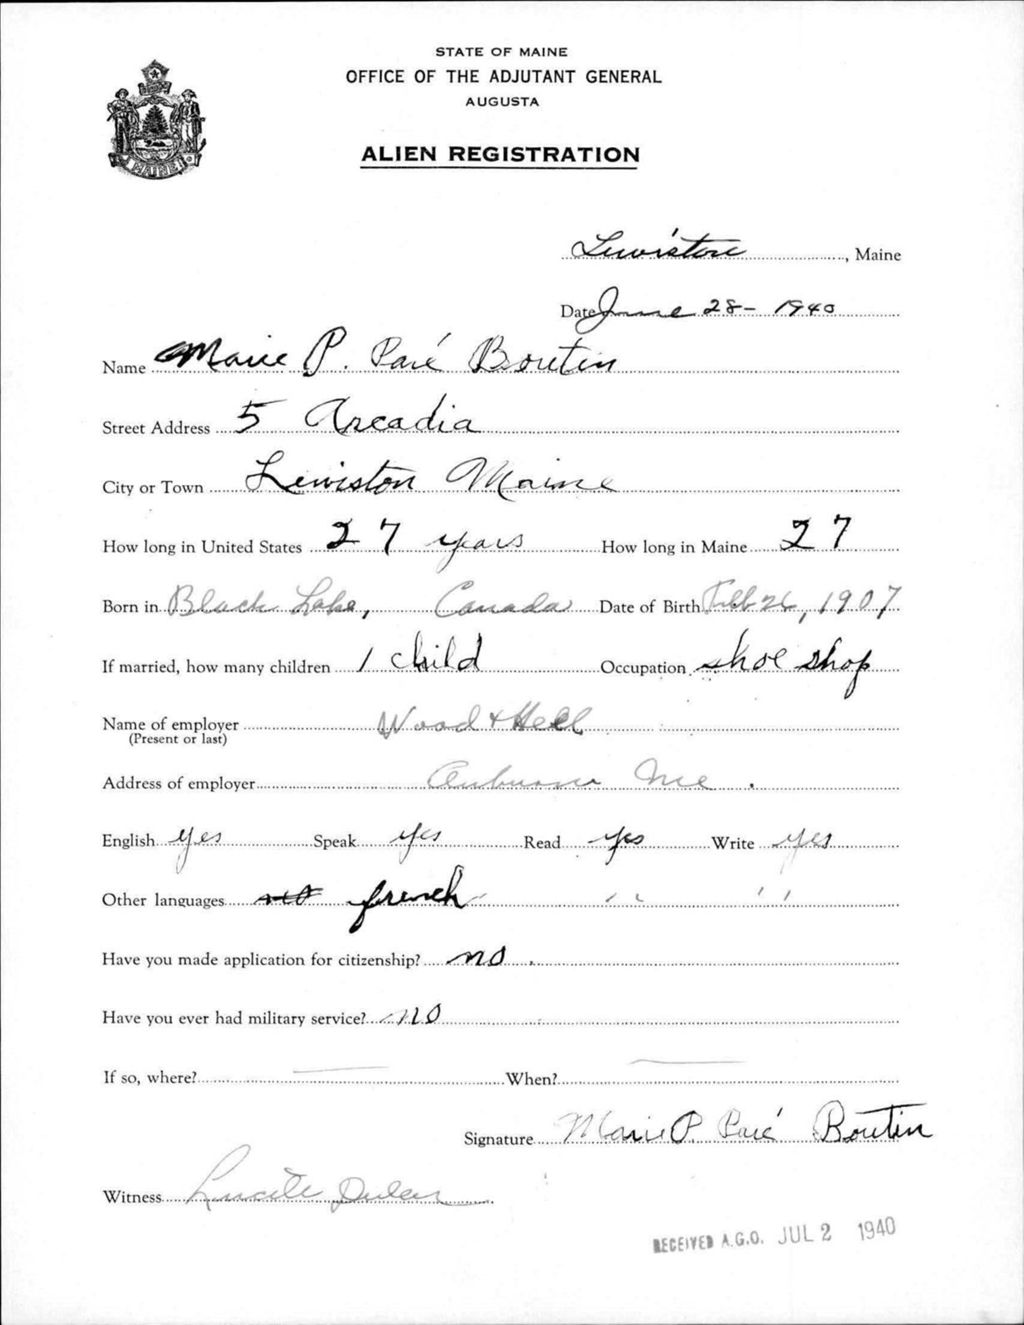 STATE OF MAINE
OFFICE OF THE ADJUTANT GENERAL
AUGUSTA
ALIEN REGISTRATION
MAINE
Lewiston, Maine
Date June 28- 1940
Name Marie P. Paré Boutin
Street Address 5 Arcadia
City or Town Lewiston Maine
How long in United States 27 years How long in Maine 27
Born in Black Lake, Canada Date of Birth Feb 26, 1907
If married, how many children 1 child Occupation shoe shop
Name of employer Wood &
(Present or last)
Address of employer Auburn Me.
English yes Speak yes Read yes Write yes
Other languages no french " "
Have you made application for citizenship? no.
Have you ever had military service? no
If so, where? — When? —
Signature Marie P. Paré Boutin
Witness Lucile
RECEIVED A.G.O. JUL 2 1940